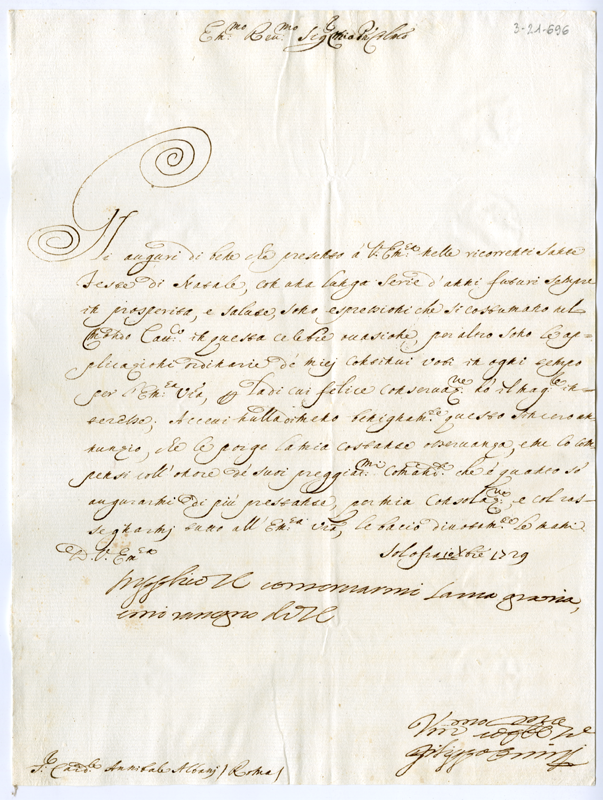 3-21-696
Em.mo Rev.mo Sig.r mio
Gli auguri di bene che presento à V. Em.za nelle ricorrenti Sante
Feste di Natale, con una lunga serie d'anni futuri sempre
in prosperità, e salute, sono espressioni che si costumano nel
Mondo in questa celebre occasione, per altro sono le ap-
plicazioni ordinarie de' miei continui voti in ogni tempo
per l'Em.za V.ra, la di cui felice conservaz.ne hò il mag.re in-
teresse; Accetti nulladimeno benignam.te questo sincero an-
nunzio, che le porge la mia costante osservanza, e me lo com-
pensi coll'onore de' suoi preggiat.mi Comandi che è quanto sò
augurarmi di più prestante, per mia Consolaz.ne, e col ras-
segnarmi tutto all'Em.za V.ra, le bacio divotam.te le mani.
D. V. Em.za
Solofra 10 Xbre 1729
conservarmi la sua grazia,
S.r Card.le Annibale Albani / Roma /